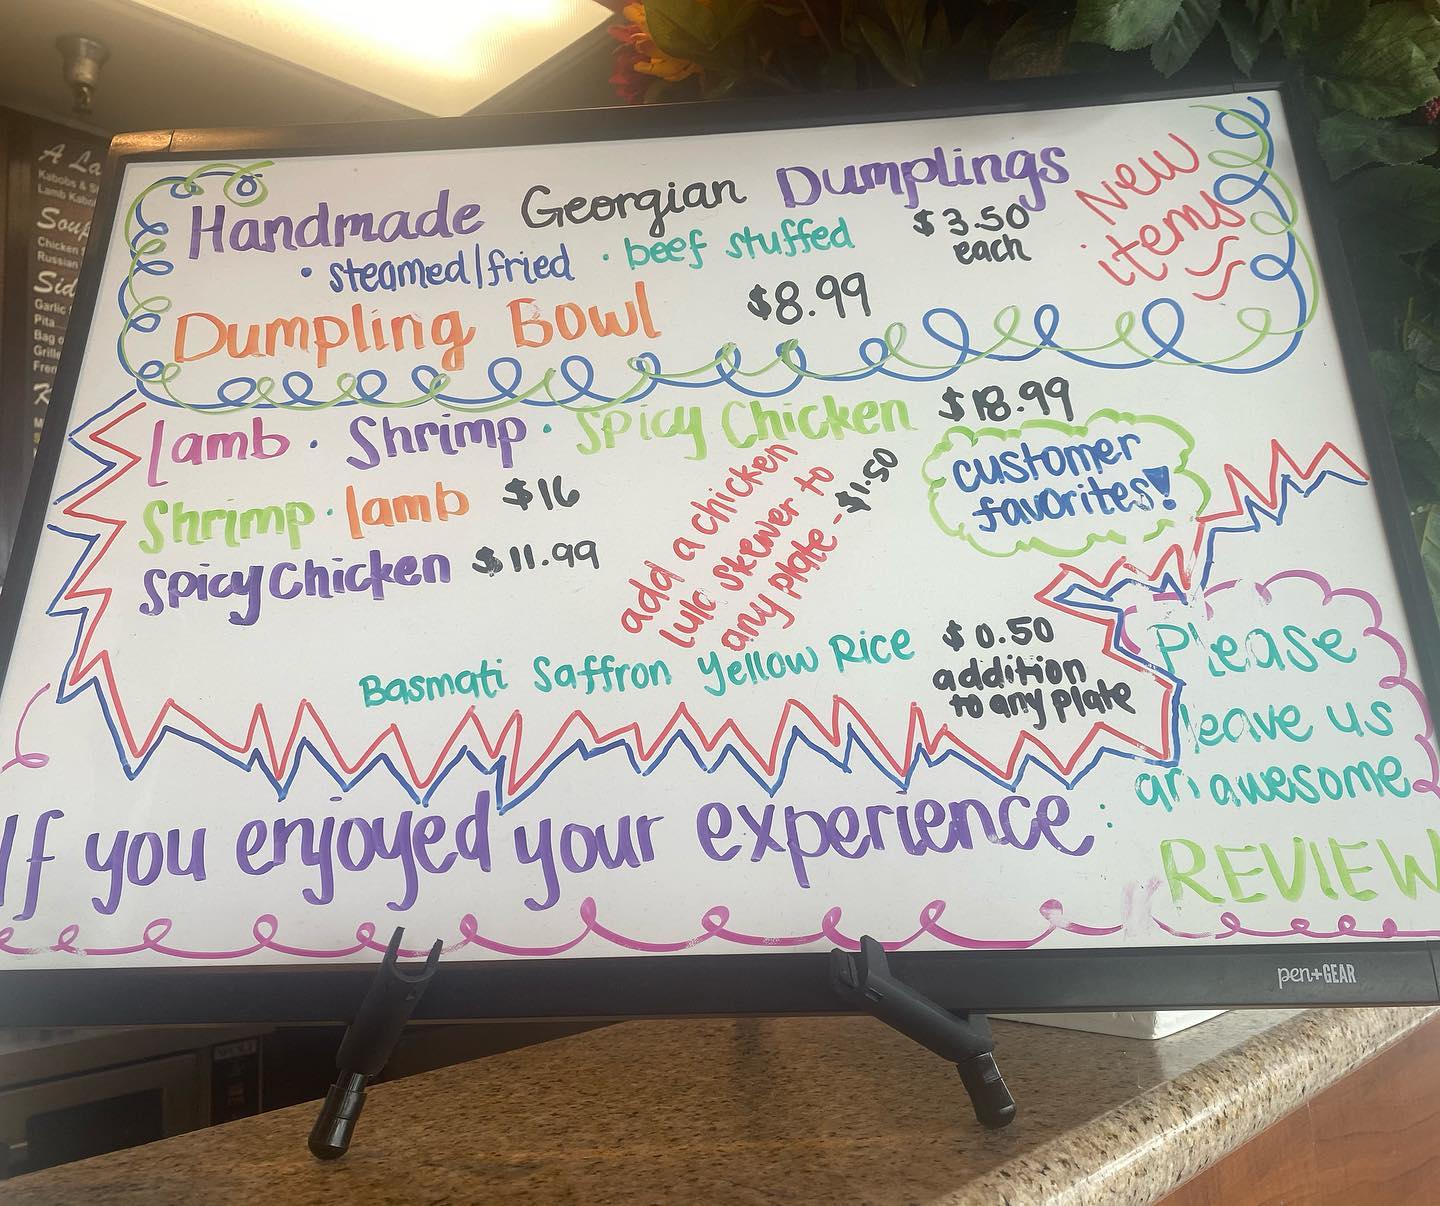 Handmade Georgian Dumplings
• steamed/fried • beef stuffed
$3.50
each
New
items
Dumpling Bowl $8.99
lamb • Shrimp • Spicy Chicken $18.99
customer
favorites!
Shrimp • lamb $16
spicy Chicken $11.99
add a chicken
lula skewer to
any plate - $1.50
Basmati Saffron Yellow Rice
$0.50
addition
to any plate
If you enjoyed your experience :
Please
leave us
an awesome
REVIEW
pen+GEAR
A La
Kabobs &
Lamb Kabo
Soup
Chicken
Russian
Sid
Garlic
Pita
Bag
Grille